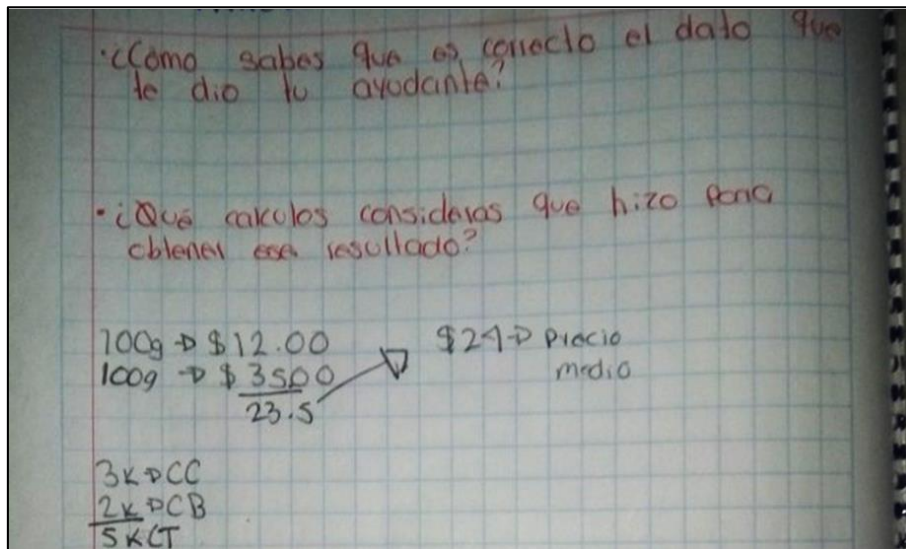 ·¿Como sabes que es correcto el dato que
te dio tu ayudante?
·¿Qué calculos consideras que hizo para
obtener ese resultado?
100g → $12.00
$24 → Precio
100g → $3500
medio
23.5
3K → CC
2K → CB
5KCT